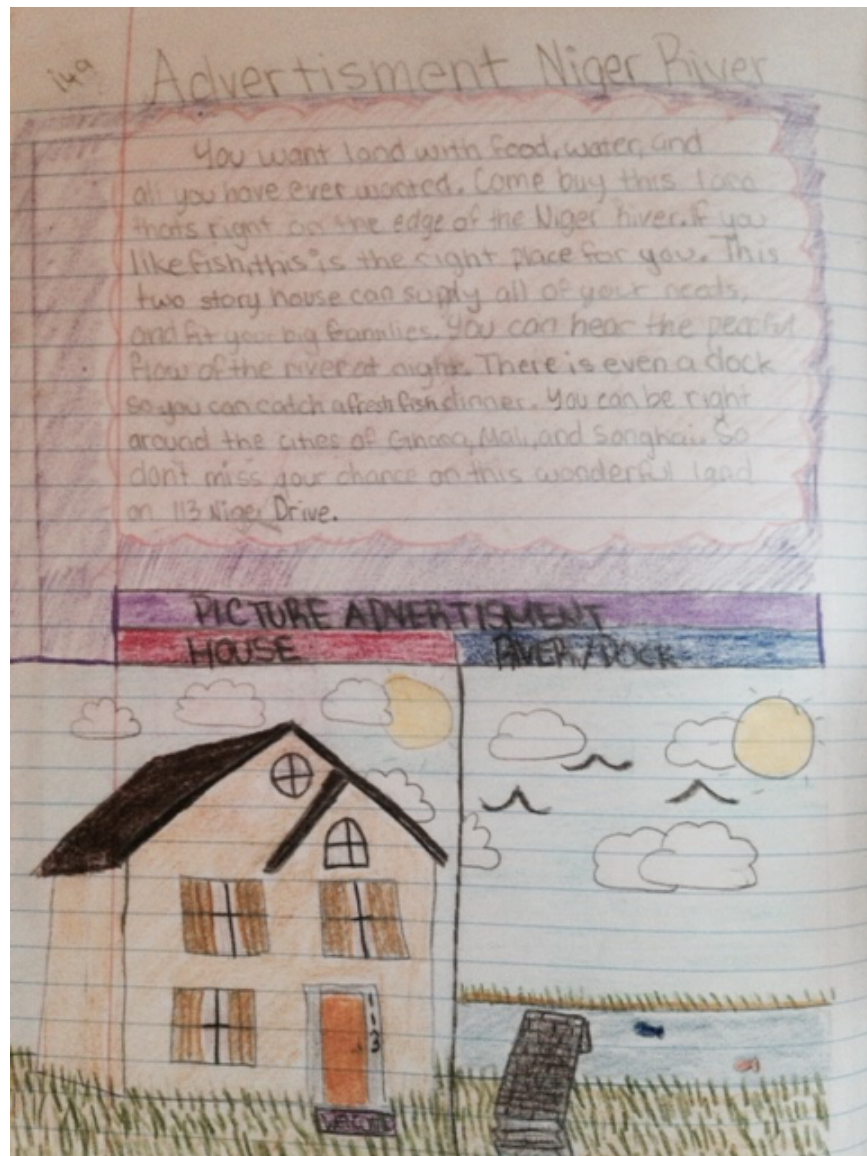 149
Advertisment Niger River
You want land with food, water, and
all you have ever wanted. Come buy this land
thats right on the edge of the Niger River. If you
like fish, this is the right place for you. This
two story house can supply all of your needs,
and fit your big fammilies. You can hear the peacful
flow of the river at night. There is even a dock
so you can catch a fresh fish dinner. You can be right
around the cities of Ghana, Mali, and Songhai. So
don't miss your chance on this wonderful land
on 113 Niger Drive.
PICTURE ADVERTISMENT
HOUSE RIVER/DOCK
113